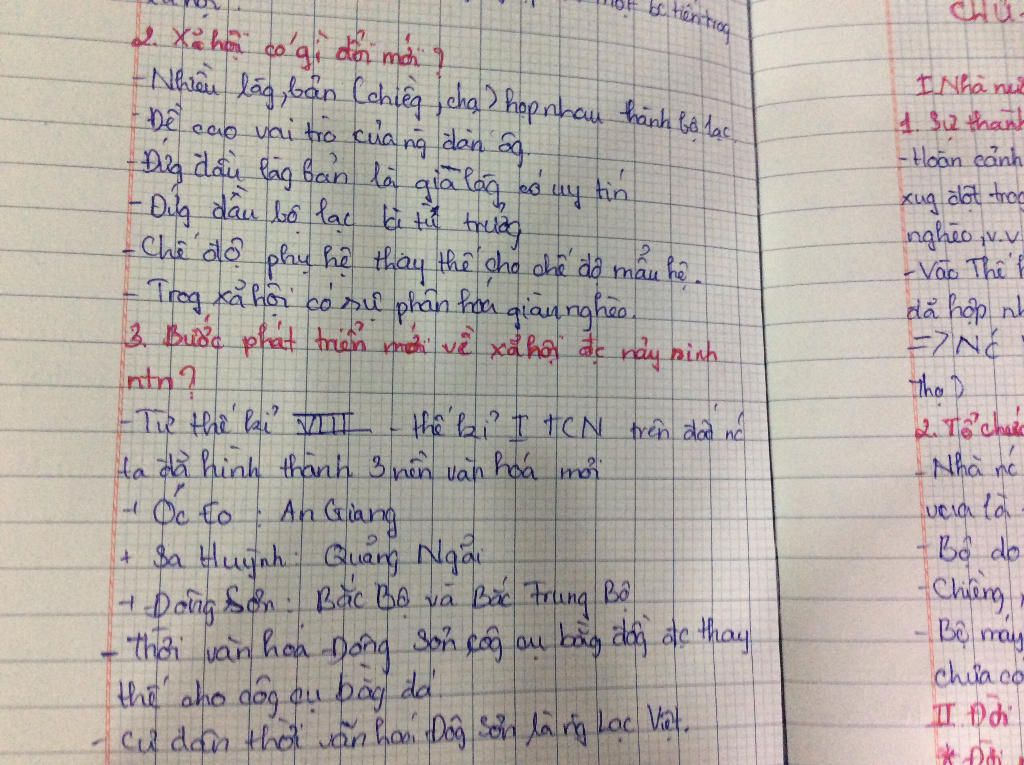 2. Xã hội có gì đổi mới?
- Nhiều làg, bản (chiềg, chạ) họp nhau thành bộ lạc
- Đề cao vai trò của ng đàn ôg
- Đứg đầu làg bản là già làg có uy tín
- Đứg đầu bộ lạc là tù trưởg
- Chế độ phụ hệ thay thế cho chế độ mẫu hệ.
- Trog xã hội có sự phân hoá giàu nghèo.
3. Bước phát triển mới về xã hội đc nảy sinh
ntn?
- Từ thế kỉ VIII - thế kỉ I TCN trên đất nc
ta đã hình thành 3 nền văn hoá mới
+ Óc Eo : An Giang
+ Sa Huỳnh : Quảng Ngãi
+ Đông Sơn : Bắc Bộ và Bắc Trung Bộ
- Thời văn hoá Đông Sơn côg cụ bằg đồg đc thay
thế cho côg cụ bằg đá
- Cư dân thời văn hoá Đôg Sơn là ng Lạc Việt.
I. Nhà nư
1. Sự thành
- Hoàn cảnh
xug đột trog
nghèo, v.v
- Vào Thế k
đã hợp nh
=> Nc
Thọ)
2. Tổ chức
- Nhà nc
vua là
- Bộ do
- Chiềng,
- Bộ máy
chưa có
II. Đời
* Đời